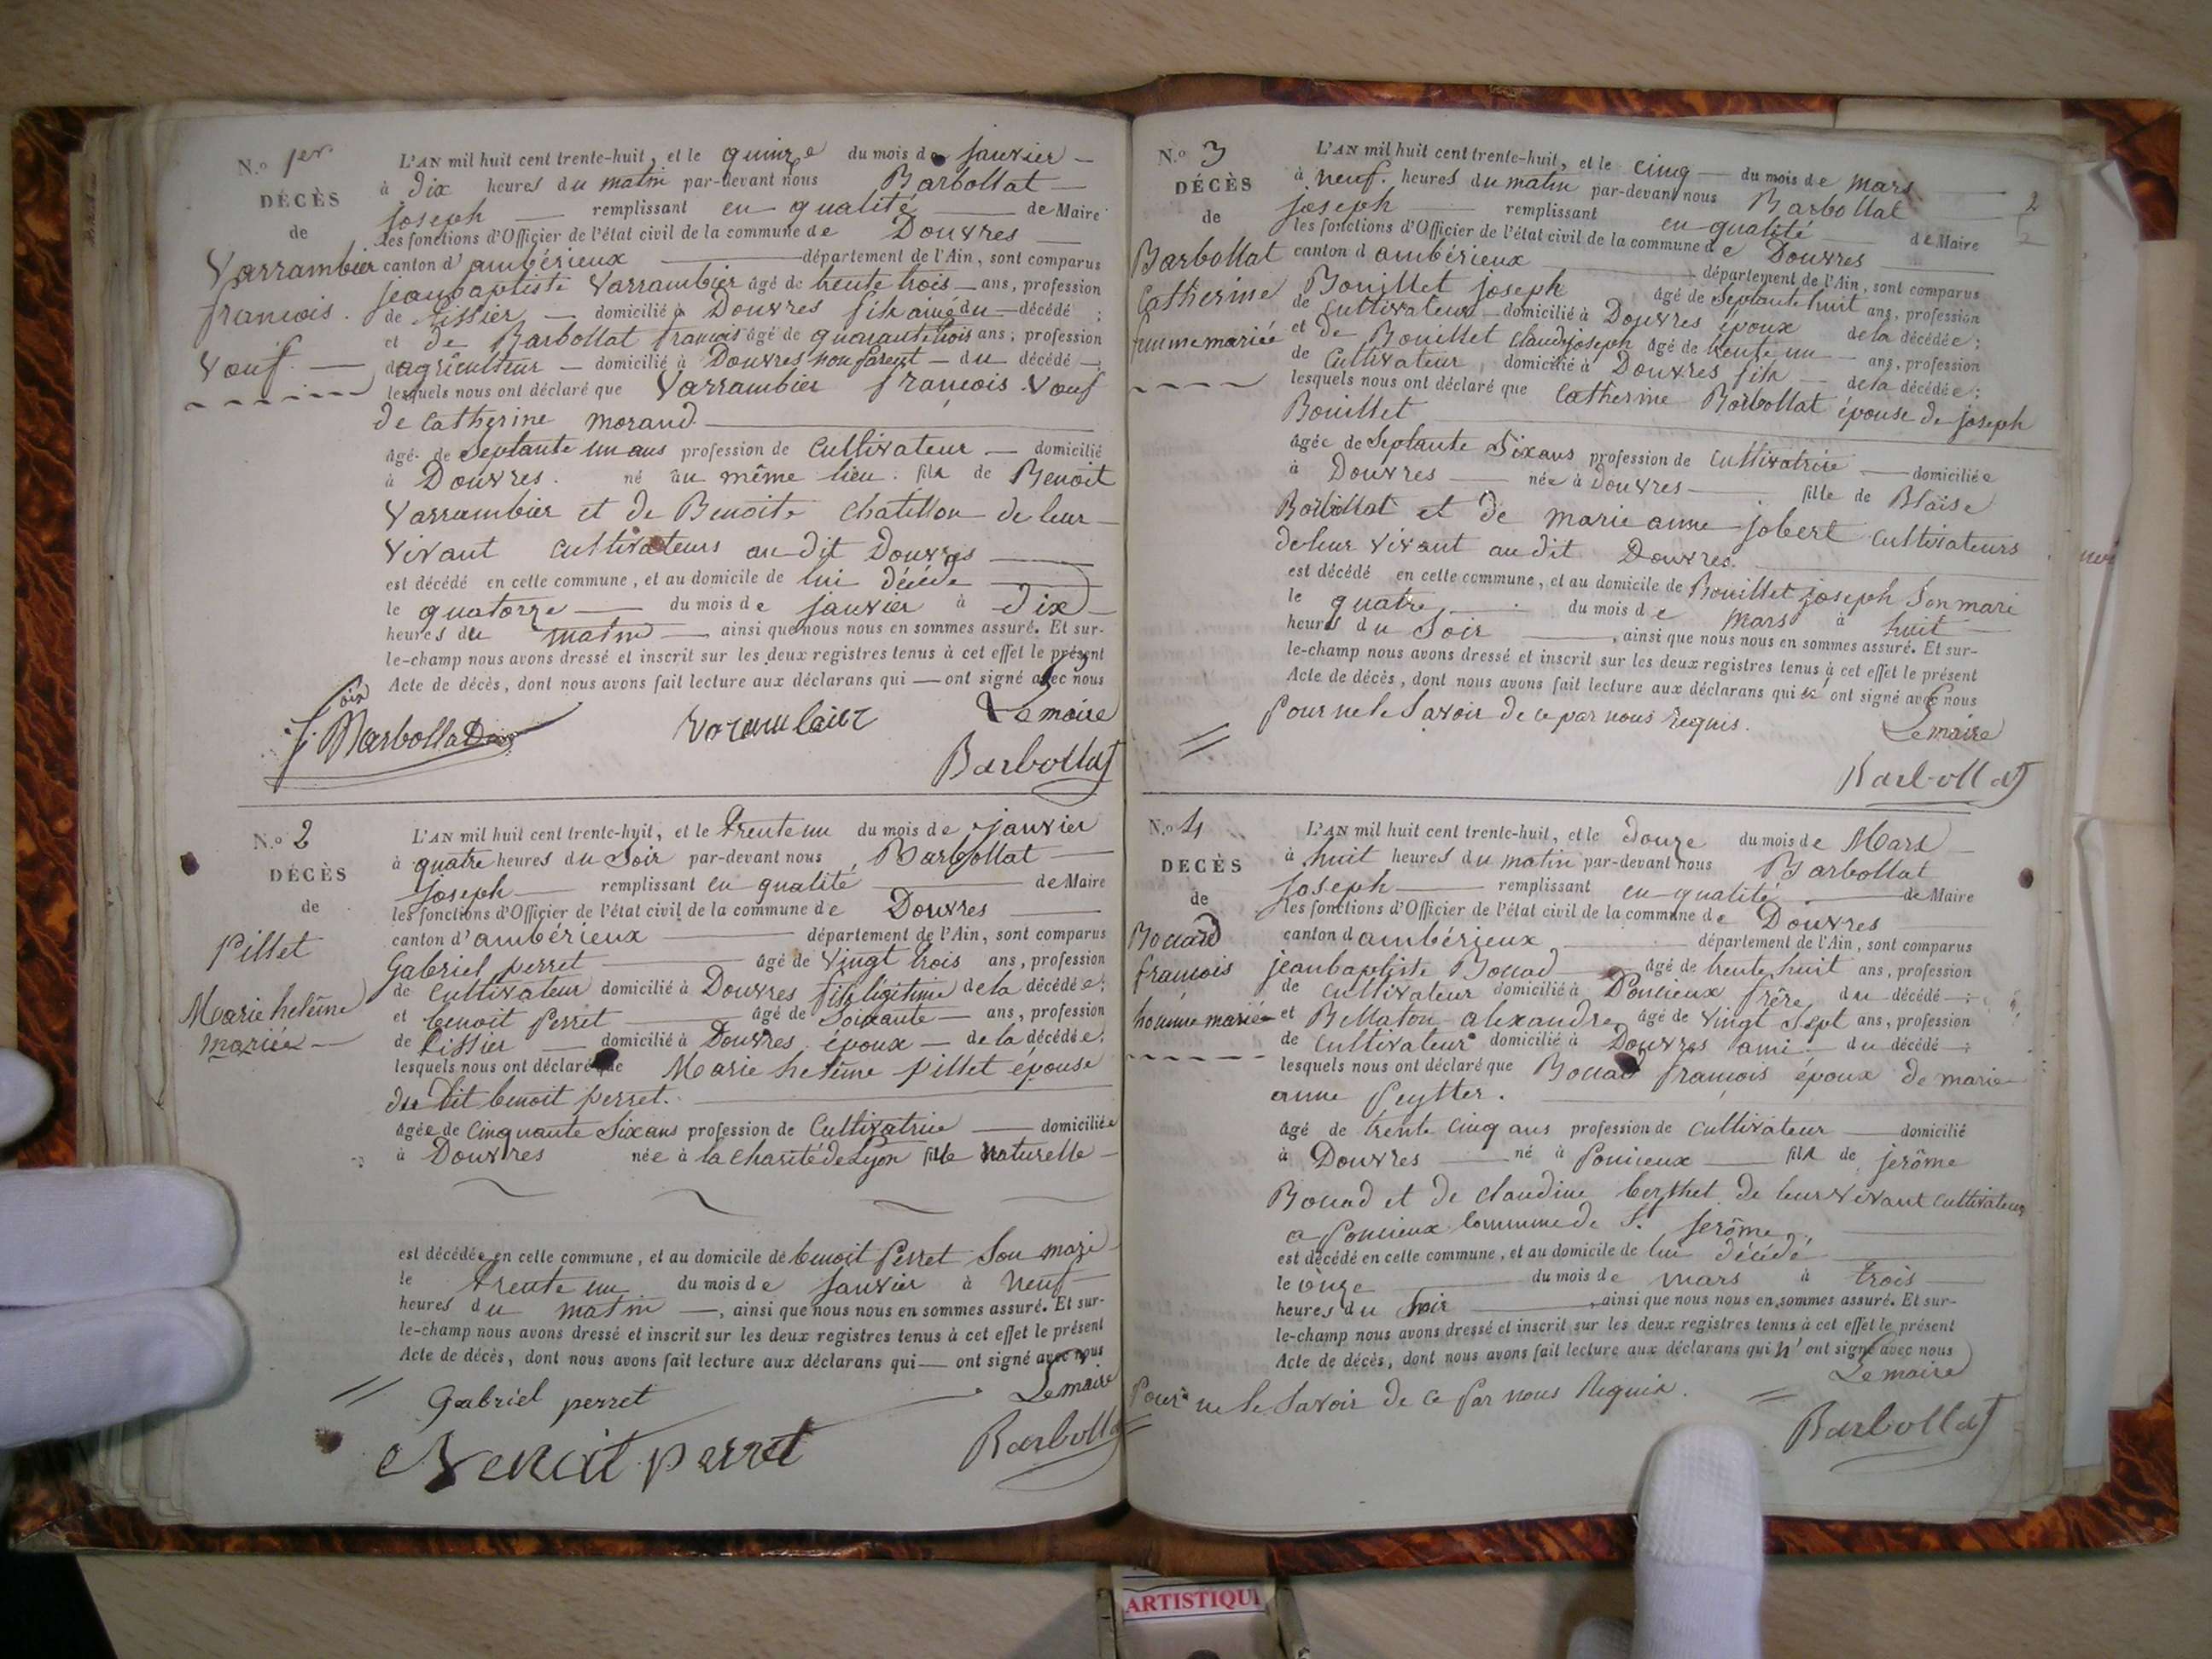 N.o 1er
DÉCÈS
de
Varrambier
francois.
Veuf —
L'AN mil huit cent trente-huit, et le quinze du mois de janvier —
à dix heures du matin par-devant nous Barbollat —
joseph — remplissant en qualité — de Maire
les fonctions d'Officier de l'état civil de la commune de Douvres —
canton d'ambérieux — département de l'Ain, sont comparus
jeanbaptiste Varrambier âgé de trente trois — ans, profession
de tissier — domicilié à Douvres fils ainé du — décédé ;
et de Barbollat francois âgé de quarante trois ans, profession
d'agriculteur — domicilié à Douvres non parent — du décédé —;
lesquels nous ont déclaré que Varrambier francois Veuf
de Catherine morand —
âgé de Septante un ans profession de Cultivateur — domicilié
à Douvres. né au même lieu. fils de Benoit
Varrambier et de Benoite Chatillon de leur
vivant cultivateurs au dit Douvres —
est décédé en cette commune, et au domicile de lui décédé —
le quatorze — du mois de janvier à dix —
heures du matin — ainsi que nous nous en sommes assuré. Et sur-
le-champ nous avons dressé et inscrit sur les deux registres tenus à cet effet le présent
Acte de décès, dont nous avons fait lecture aux déclarans qui — ont signé avec nous
f. Barbollat Varambier Le maire
Barbollat
N.o 2
DÉCÈS
de
Pillet
Marie heléine
mariée —
L'AN mil huit cent trente-huit, et le trente un du mois de janvier
à quatre heures du Soir par-devant nous Barbollat —
joseph — remplissant en qualité — de Maire
les fonctions d'Officier de l'état civil de la commune de Douvres —
canton d'ambérieux — département de l'Ain, sont comparus
Gabriel perret — âgé de vingt trois ans, profession
de Cultivateur domicilié à Douvres fils légitime de la décédée;
et benoit Perret — âgé de Soixante — ans, profession
de tissier — domicilié à Douvres époux — de la décédée;
lesquels nous ont déclaré que Marie heléine pillet épouse
du dit benoit perret. —
âgée de Cinquante Six ans profession de Cultivatrice — domiciliée
à Douvres née à la Charité de Lyon fille naturelle —
est décédée en cette commune, et au domicile de benoit Perret Son mari
le trente un du mois de janvier à neuf —
heures du matin —, ainsi que nous nous en sommes assuré. Et sur-
le-champ nous avons dressé et inscrit sur les deux registres tenus à cet effet le présent
Acte de décès, dont nous avons fait lecture aux déclarans qui — ont signé avec nous
Gabriel perret Le maire
Benoit perret Barbollat
N.o 3
DÉCÈS
de
Barbollat
Catherine
femme mariée
L'AN mil huit cent trente-huit, et le cinq — du mois de mars —
à neuf heures du matin par-devant nous Barbollat — 2
joseph — remplissant en qualité — de Maire
les fonctions d'Officier de l'état civil de la commune de Douvres —
canton d'ambérieux — département de l'Ain, sont comparus
Bouillet joseph âgé de Septante huit ans, profession
de Cultivateur — domicilié à Douvres époux de la décédée;
et de Bouillet Claudejoseph âgé de trente un — ans, profession
de Cultivateur, domicilié à Douvres fils — de la décédée;
lesquels nous ont déclaré que Catherine Barbollat épouse de joseph
Bouillet —
âgée de Septante Six ans profession de Cultivatrice — domiciliée
à Douvres — née à Douvres — fille de Blaise
Barbollat et de marie anne jobert cultivateurs
de leur vivant au dit Douvres. —
est décédé en cette commune, et au domicile de Bouillet joseph Son mari
le quatre — du mois de mars à huit —
heures du Soir —, ainsi que nous nous en sommes assuré. Et sur-
le-champ nous avons dressé et inscrit sur les deux registres tenus à cet effet le présent
Acte de décès, dont nous avons fait lecture aux déclarans qui n' ont signé avec nous
Pour ne le Savoir de ce par nous requis. Le maire
Barbollat
N.o 4
DÉCÈS
de
Bouad
francois
homme marié
L'AN mil huit cent trente-huit, et le douze du mois de Mars —
à huit heures du matin par-devant nous Barbollat
joseph — remplissant en qualité — de Maire
les fonctions d'Officier de l'état civil de la commune de Douvres —
canton d'ambérieux — département de l'Ain, sont comparus
jeanbaptiste Bouad — âgé de trente huit ans, profession
de cultivateur domicilié à Poncieux frère du décédé —;
et Billaton alexandre âgé de vingt Sept ans, profession
de cultivateur domicilié à Douvres ami — du décédé —;
lesquels nous ont déclaré que Bouad francois époux de marie
anne Peytter. —
âgé de trente cinq ans profession de Cultivateur — domicilié
à Douvres — né à Poncieux — fils de jerôme
Bouad et de claudine berthet de leur vivant Cultivateurs
a Poncieux Commune de St. jerôme. —
est décédé en cette commune, et au domicile de lui décédé —
le onze — du mois de mars à trois —
heures du Soir —, ainsi que nous nous en sommes assuré. Et sur-
le-champ nous avons dressé et inscrit sur les deux registres tenus à cet effet le présent
Acte de décès, dont nous avons fait lecture aux déclarans qui n' ont signé avec nous
Pour ne le Savoir de ce par nous Requis. Le maire
Barbollat
ARTISTIQU